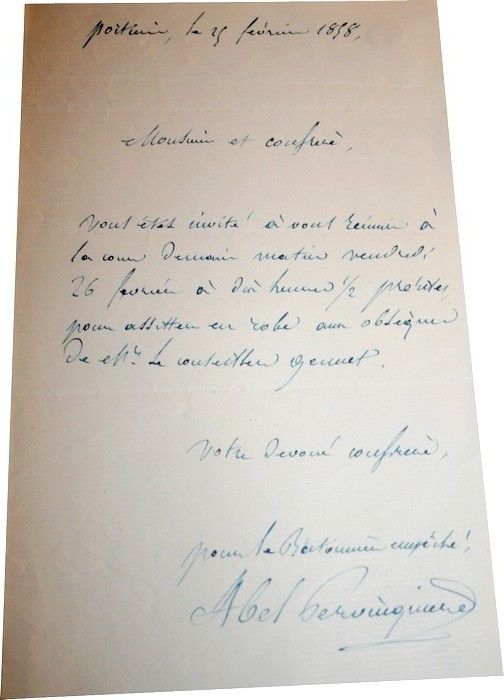 Poitiers, le 25 février 1858,
Monsieur et confrère,
Vous êtes invité à vous réunir à
la cour demain matin vendredi
26 février à dix heures 1/2 précises,
pour assister en robe aux obsèques
de Mr. le conseiller
Votre dévoué confrère,
pour le Bâtonnier empêché,
Abel Pervinquière